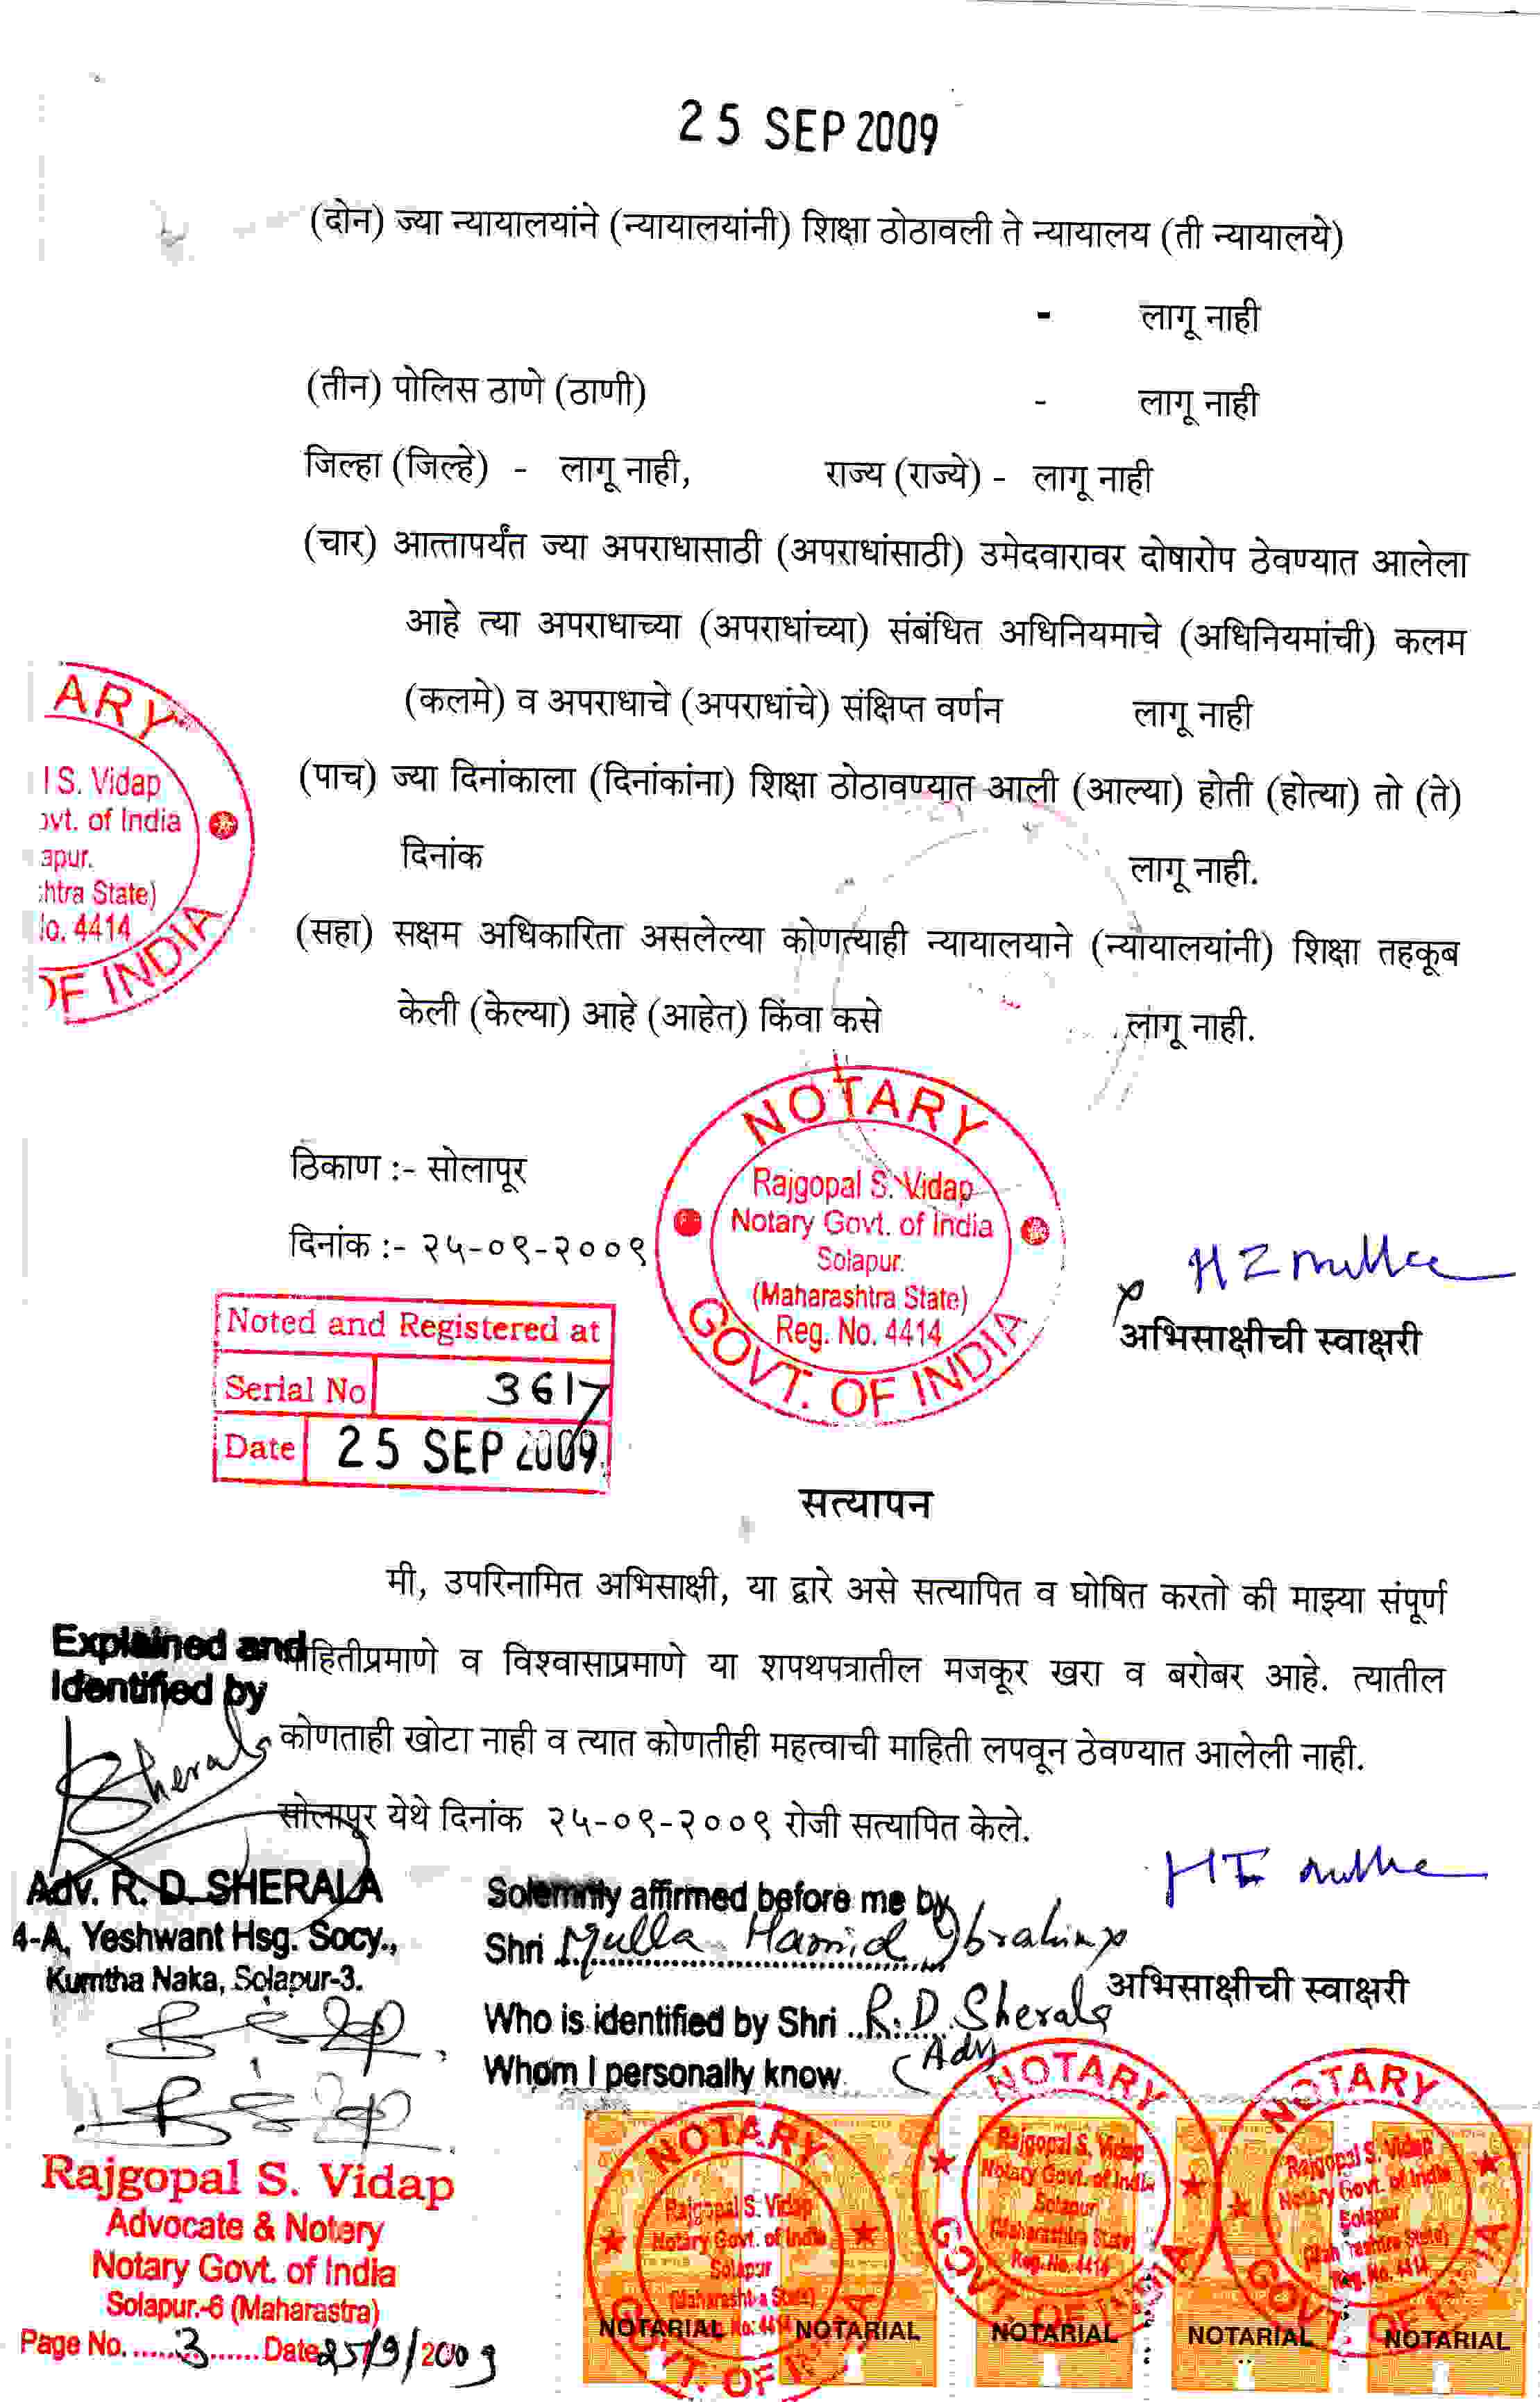 25 SEP 2009
(दोन) ज्या न्यायालयांने (न्यायालयांनी) शिक्षा ठोठावली ते न्यायालय (ती न्यायालये)
- लागू नाही
(तीन) पोलिस ठाणे (ठाणी) - लागू नाही
जिल्हा (जिल्हे) - लागू नाही, राज्य (राज्ये) - लागू नाही
(चार) आत्तापर्यंत ज्या अपराधासाठी (अपराधांसाठी) उमेदवारावर दोषारोप ठेवण्यात आलेला
आहे त्या अपराधाच्या (अपराधांच्या) संबंधित अधिनियमाचे (अधिनियमांची) कलम
(कलमे) व अपराधाचे (अपराधांचे) संक्षिप्त वर्णन लागू नाही
(पाच) ज्या दिनांकाला (दिनांकांना) शिक्षा ठोठावण्यात आली (आल्या) होती (होत्या) तो (ते)
दिनांक लागू नाही.
(सहा) सक्षम अधिकारिता असलेल्या कोणत्याही न्यायालयाने (न्यायालयांनी) शिक्षा तहकूब
केली (केल्या) आहे (आहेत) किंवा कसे लागू नाही.
ARY
S. Vidap
of India
State)
4414
OF INDIA
ठिकाण :- सोलापूर
दिनांक :- २५-०९-२००९
NOTARY
Rajgopal S. Vidap
Notary Govt. of India
Solapur.
(Maharashtra State)
Reg. No. 4414
GOVT. OF INDIA
अभिसाक्षीची स्वाक्षरी
Noted and Registered at
Serial No 3617
Date 25 SEP 2009
सत्यापन
मी, उपरिनामित अभिसाक्षी, या द्वारे असे सत्यापित व घोषित करतो की माझ्या संपूर्ण
माहितीप्रमाणे व विश्वासाप्रमाणे या शपथपत्रातील मजकूर खरा व बरोबर आहे. त्यातील
कोणताही खोटा नाही व त्यात कोणतीही महत्वाची माहिती लपवून ठेवण्यात आलेली नाही.
सोलापूर येथे दिनांक २५-०९-२००९ रोजी सत्यापित केले.
Explained and
Identified by
Sherala
Adv. R. D. SHERALA
4-A, Yeshwant Hsg. Socy.,
Kumtha Naka, Solapur-3.
Solemnly affirmed before me by
Shri Mulla Hamid Ibrahim
Who is identified by Shri R. D. Sherala
(Adv
Whom I personally know
अभिसाक्षीची स्वाक्षरी
Rajgopal S. Vidap
Advocate & Notary
Notary Govt. of India
Solapur.-6 (Maharastra)
Page No. 3 Date 25/9/2009
NOTARY
Rajgopal S. Vidap
Notary Govt. of India
Solapur
(Maharashtra State)
GOVT. OF
NOTARY
Rajgopal S. Vidap
Notary Govt. of India
Solapur
(Maharashtra State)
Reg. No. 4414
GOVT. OF INDIA
NOTARY
Rajgopal S. Vidap
Notary Govt. of India
Solapur
Reg. No. 4414
NOTARIAL NOTARIAL NOTARIAL NOTARIAL NOTARIAL